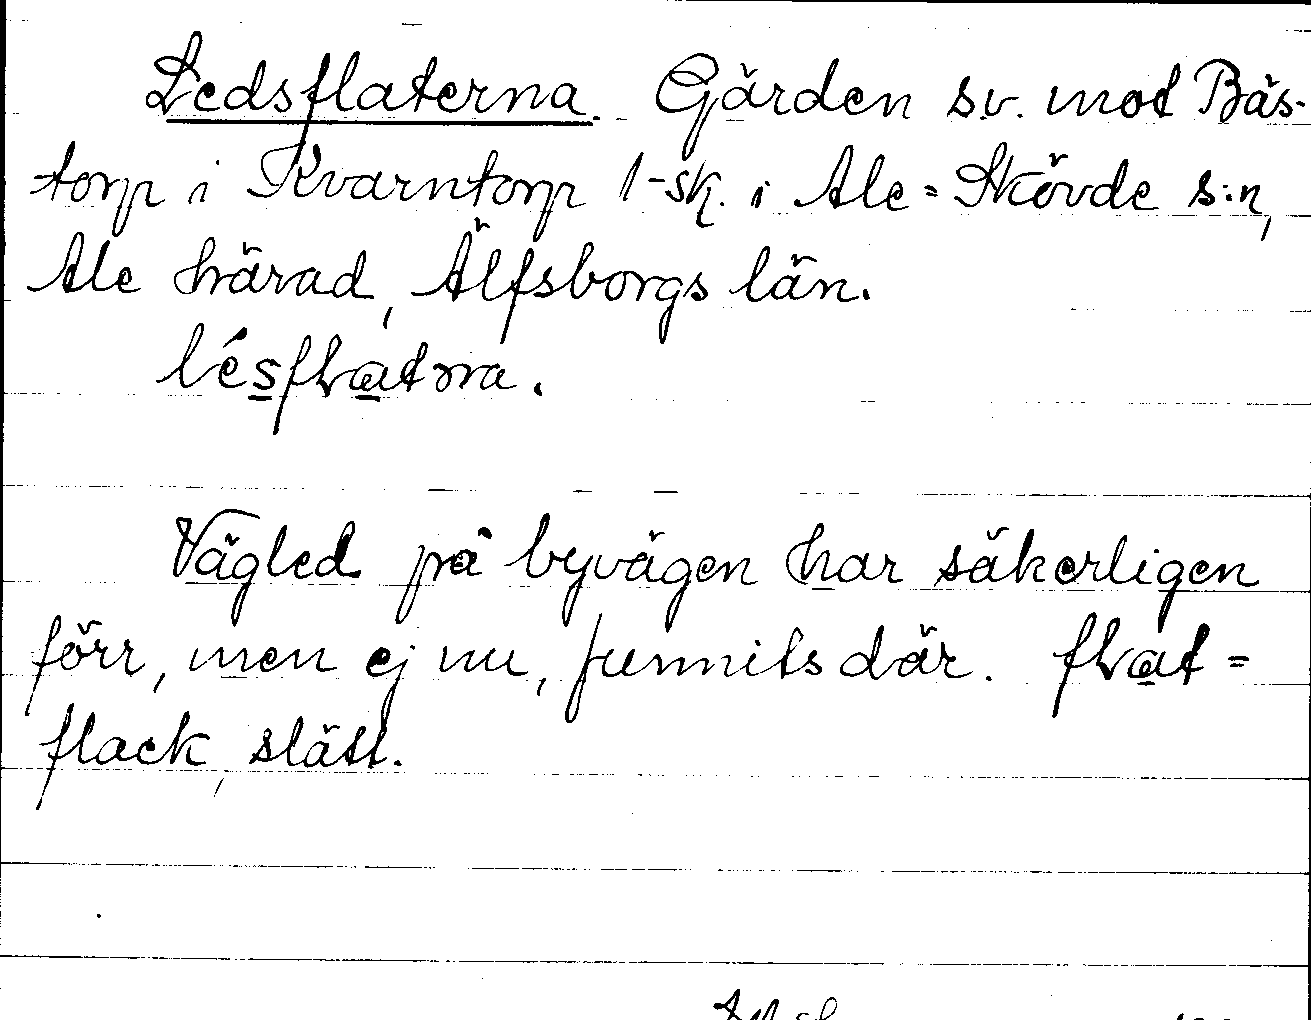 Ledsflaterna. Gärden s.v. mot Bäs-
torp i Kvarntorp 1-sk. i Ale=Skövde s:n,
Ale härad, Älfsborgs län.
lésflatṇa.
Vägled på byvägen har säkerligen
förr, men ej nu, funnits där. flat =
flack, slätt.